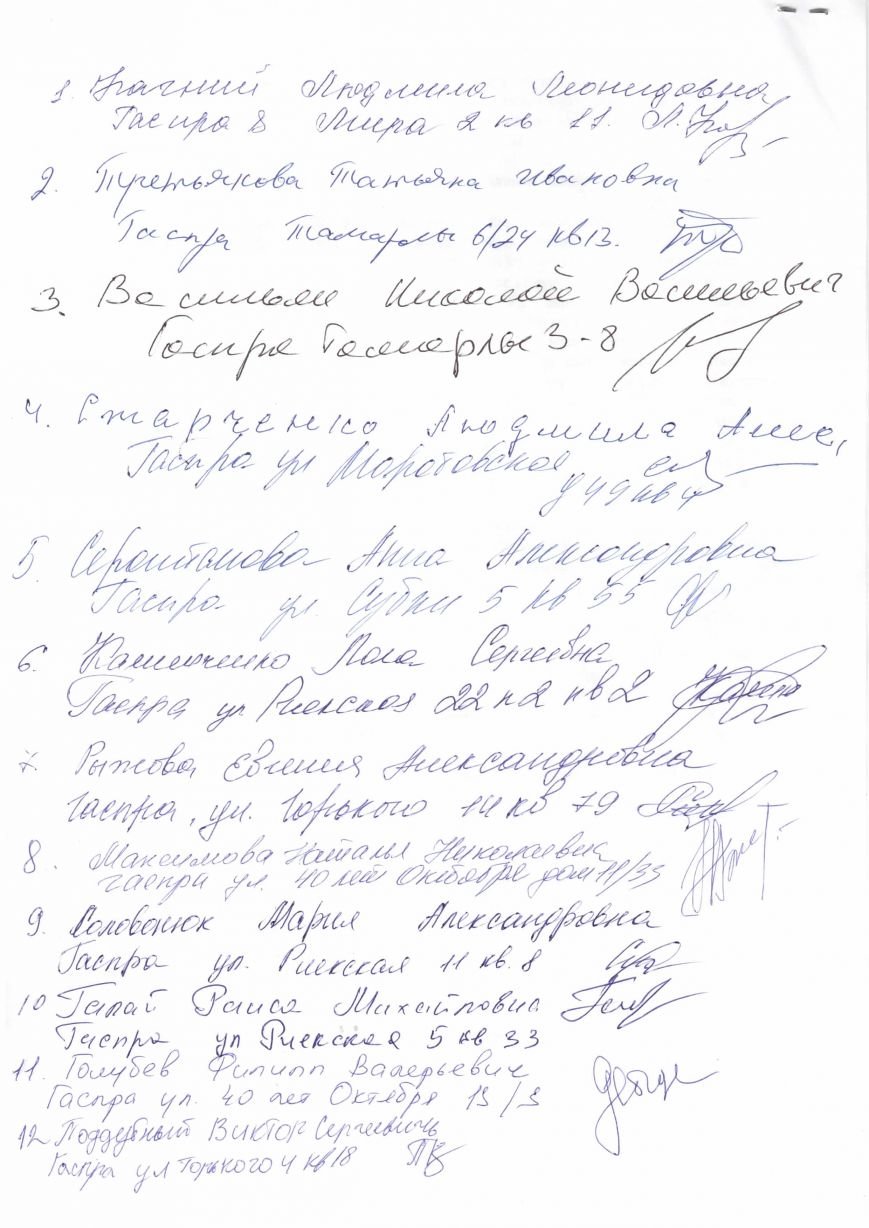 1. Людмила Леонидовна
Гаспра Мира 2 кв 11.
2. Третьякова Татьяна Ивановна
Гаспра Тамарлы 6/24 кв 13.
3. Николай Васильевич
Гаспра Тамарлы 3-8
4. Старченко Людмила Алек.
Гаспра ул
5. Анна Александровна
Гаспра ул. 5 кв 55
6. Сергеевна
Гаспра ул Риекская 22 кв 2
7. Рыжова Евгения Александровна
Гаспра, ул. Горького 14 кв 79
8. Максимова Наталья Николаевна
Гаспра ул. 40 лет Октября дом
9. Соловонюк Мария Александровна
Гаспра ул. Риекская 11 кв. 8
10 Галай Раиса Михайловна
Гаспра ул Риекская 5 кв 33
11. Голубев Филипп Валерьевич
Гаспра ул. 40 лет Октября 13/3
12 Поддубный Виктор Сергеевич
Гаспра ул Горького 4 кв 18